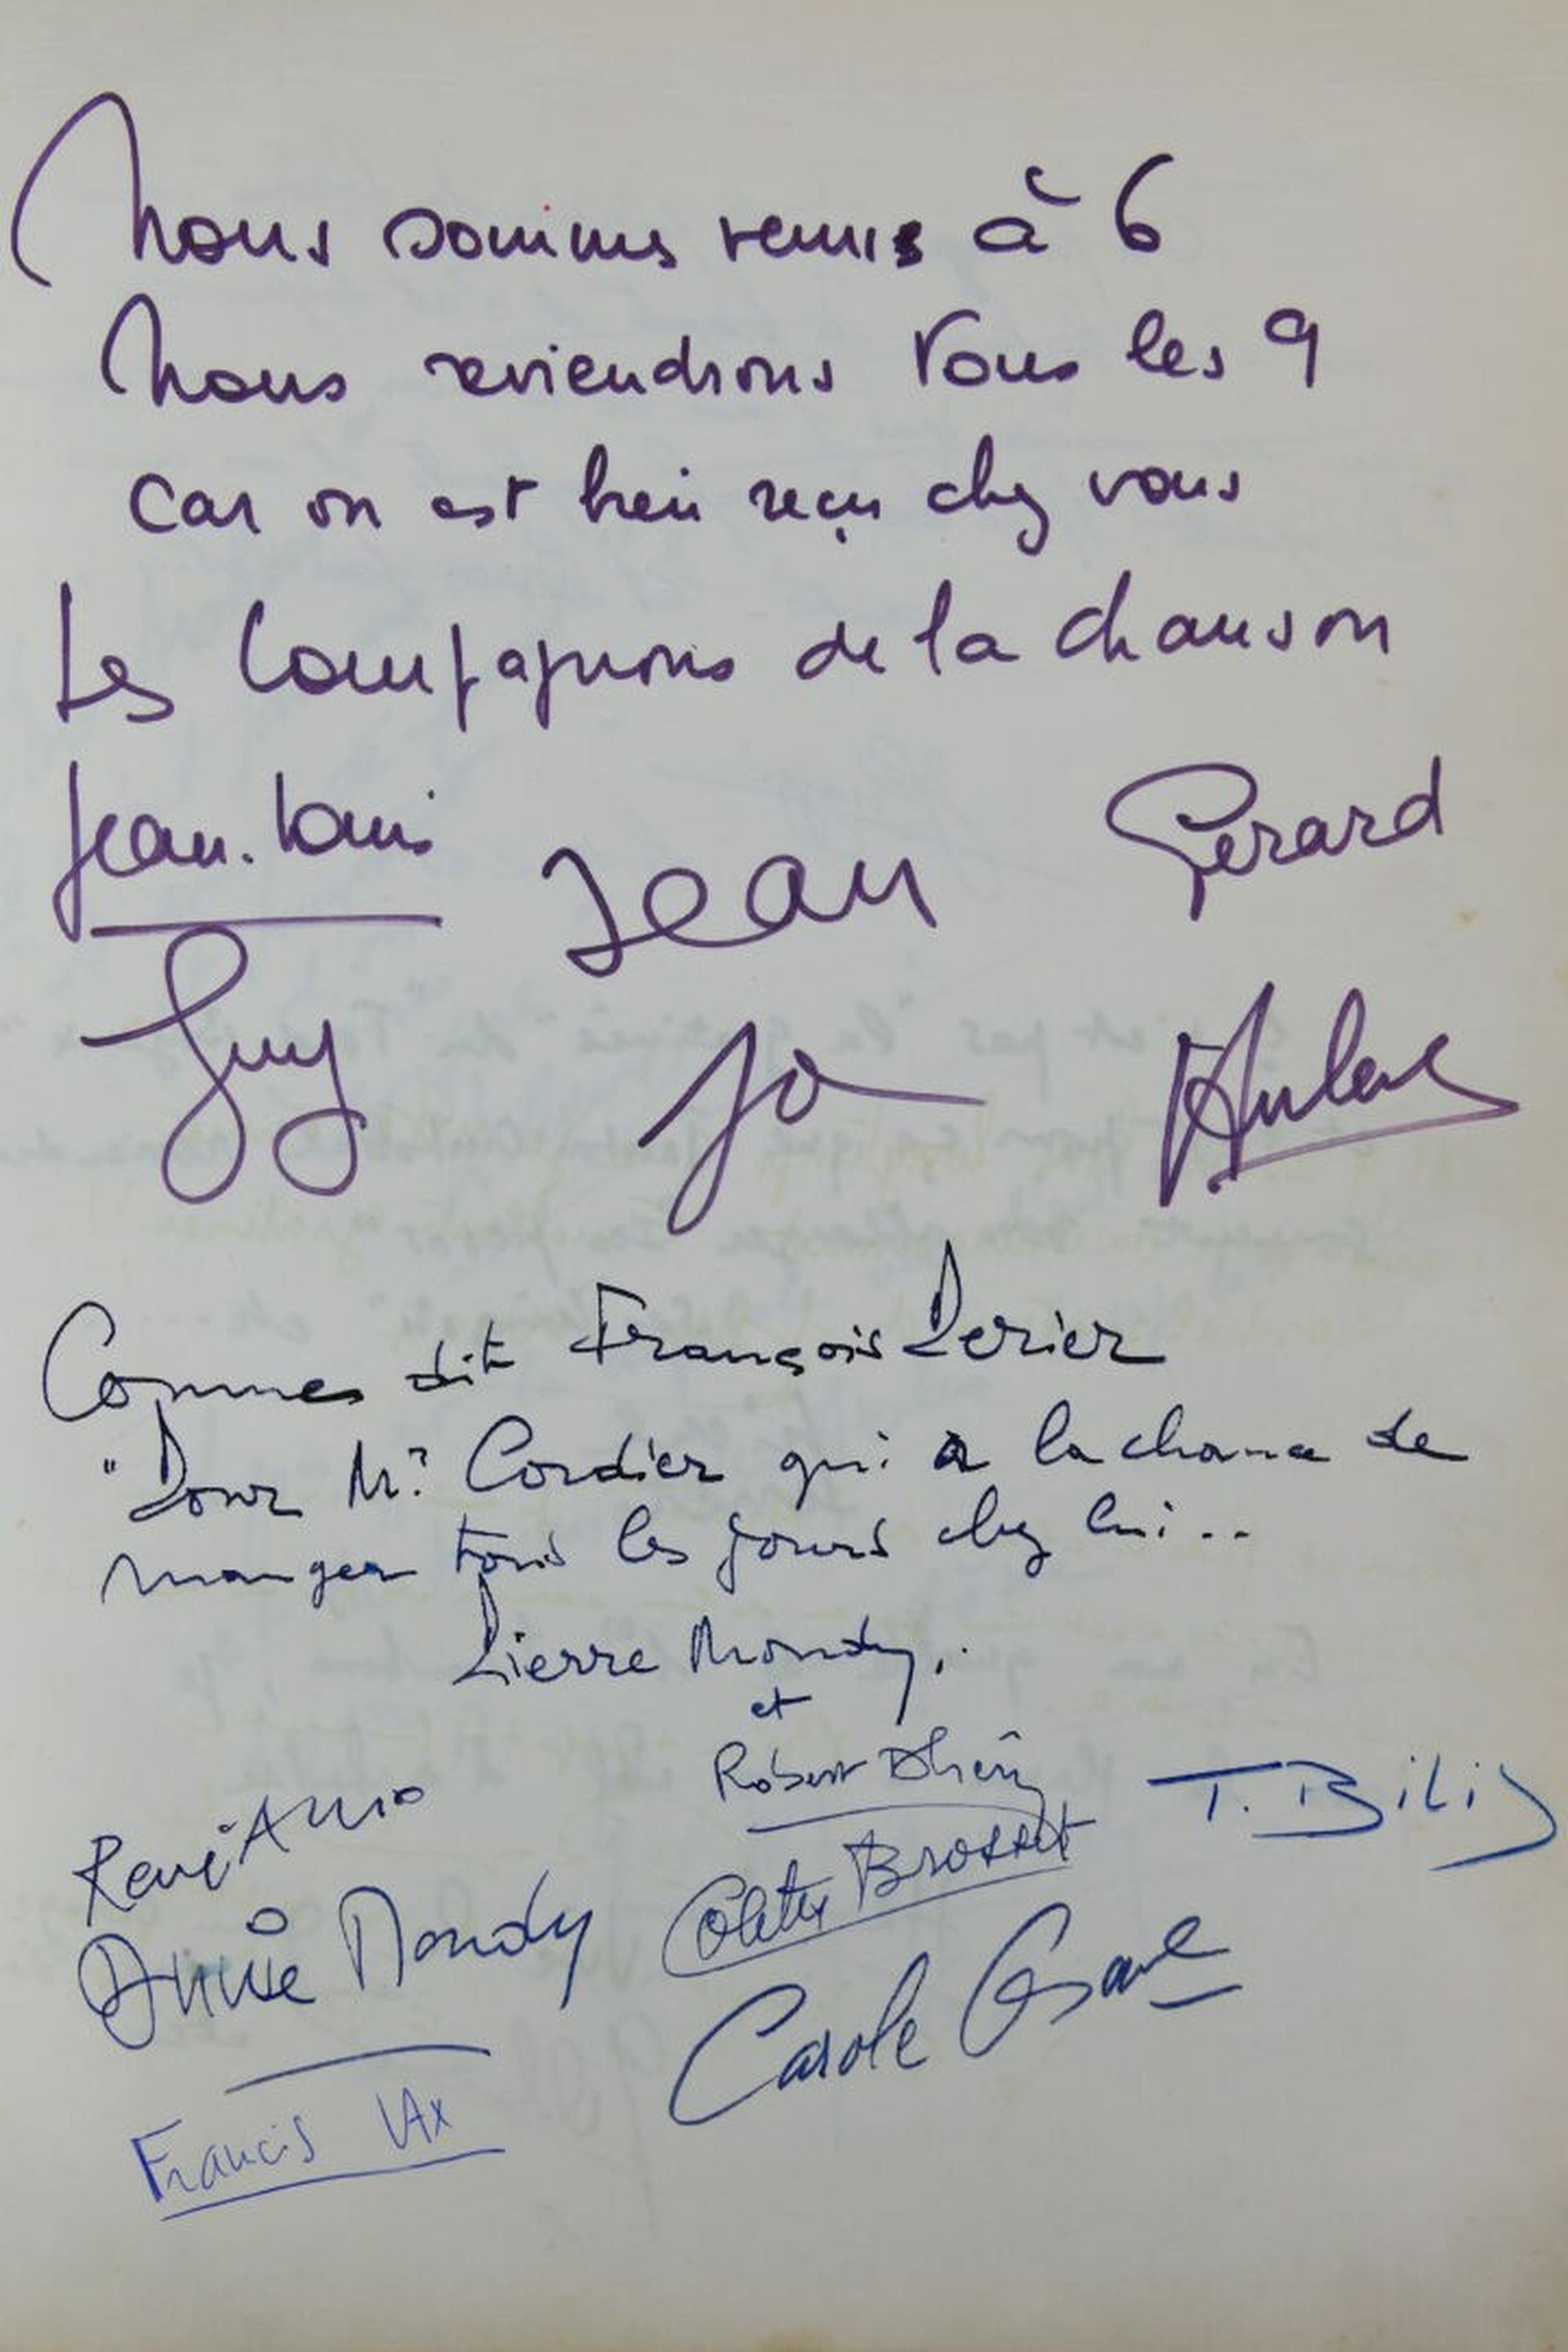 Nous sommes venus à 6
Nous reviendrons Tous les 9
Car on est bien reçu chez vous
Les Compagnons de la chanson
Jean.Louis Jean Gérard
Guy Jo Hubert
Commes dit François Perier
"Pour Mr Cordier qui a la chance de
manger tous les jours chez lui..
Pierre Mondy.
et
Robert Dhéry T. Bilis
René
Colette Brosset
Annie Mondy
Carole
Francis Lax